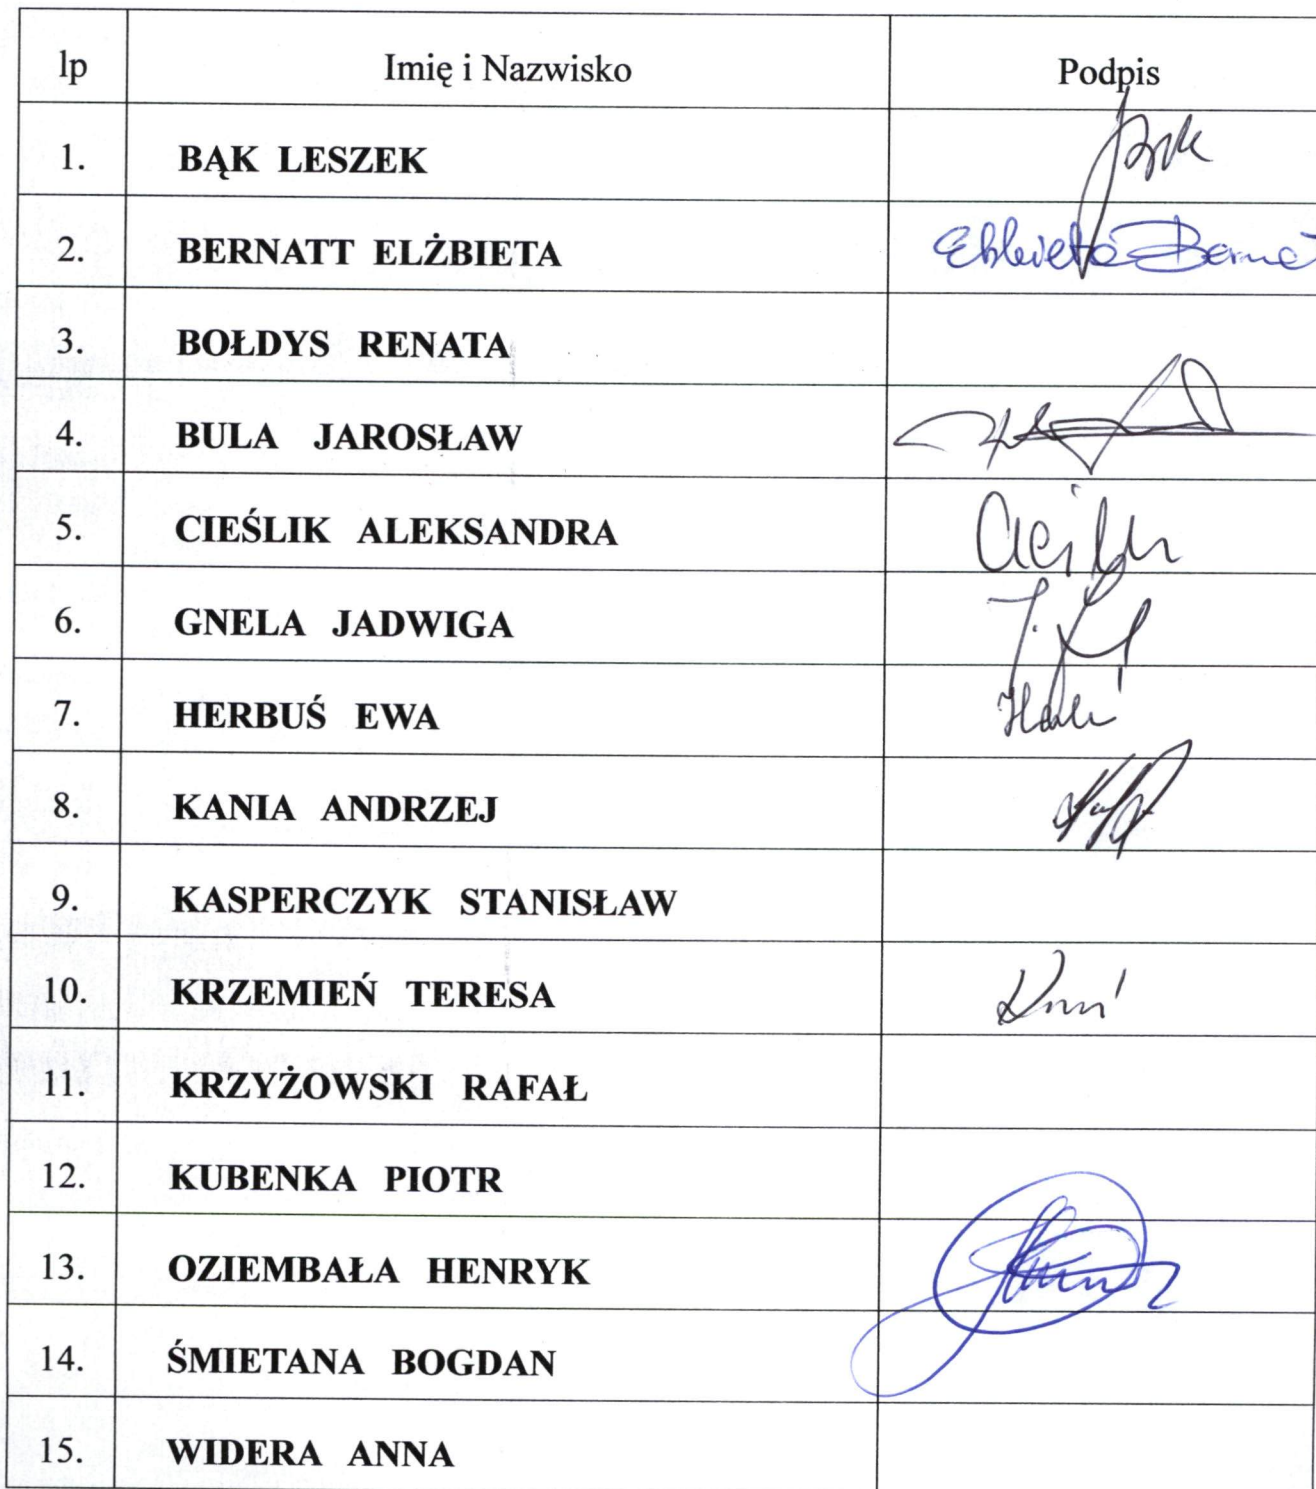 lp Imię i Nazwisko Podpis
1. BĄK LESZEK
2. BERNATT ELŻBIETA Elżbieta Bernat
3. BOŁDYS RENATA
4. BULA JAROSŁAW
5. CIEŚLIK ALEKSANDRA
6. GNELA JADWIGA
7. HERBUŚ EWA
8. KANIA ANDRZEJ
9. KASPERCZYK STANISŁAW
10. KRZEMIEŃ TERESA
11. KRZYŻOWSKI RAFAŁ
12. KUBENKA PIOTR
13. OZIEMBAŁA HENRYK
14. ŚMIETANA BOGDAN
15. WIDERA ANNA